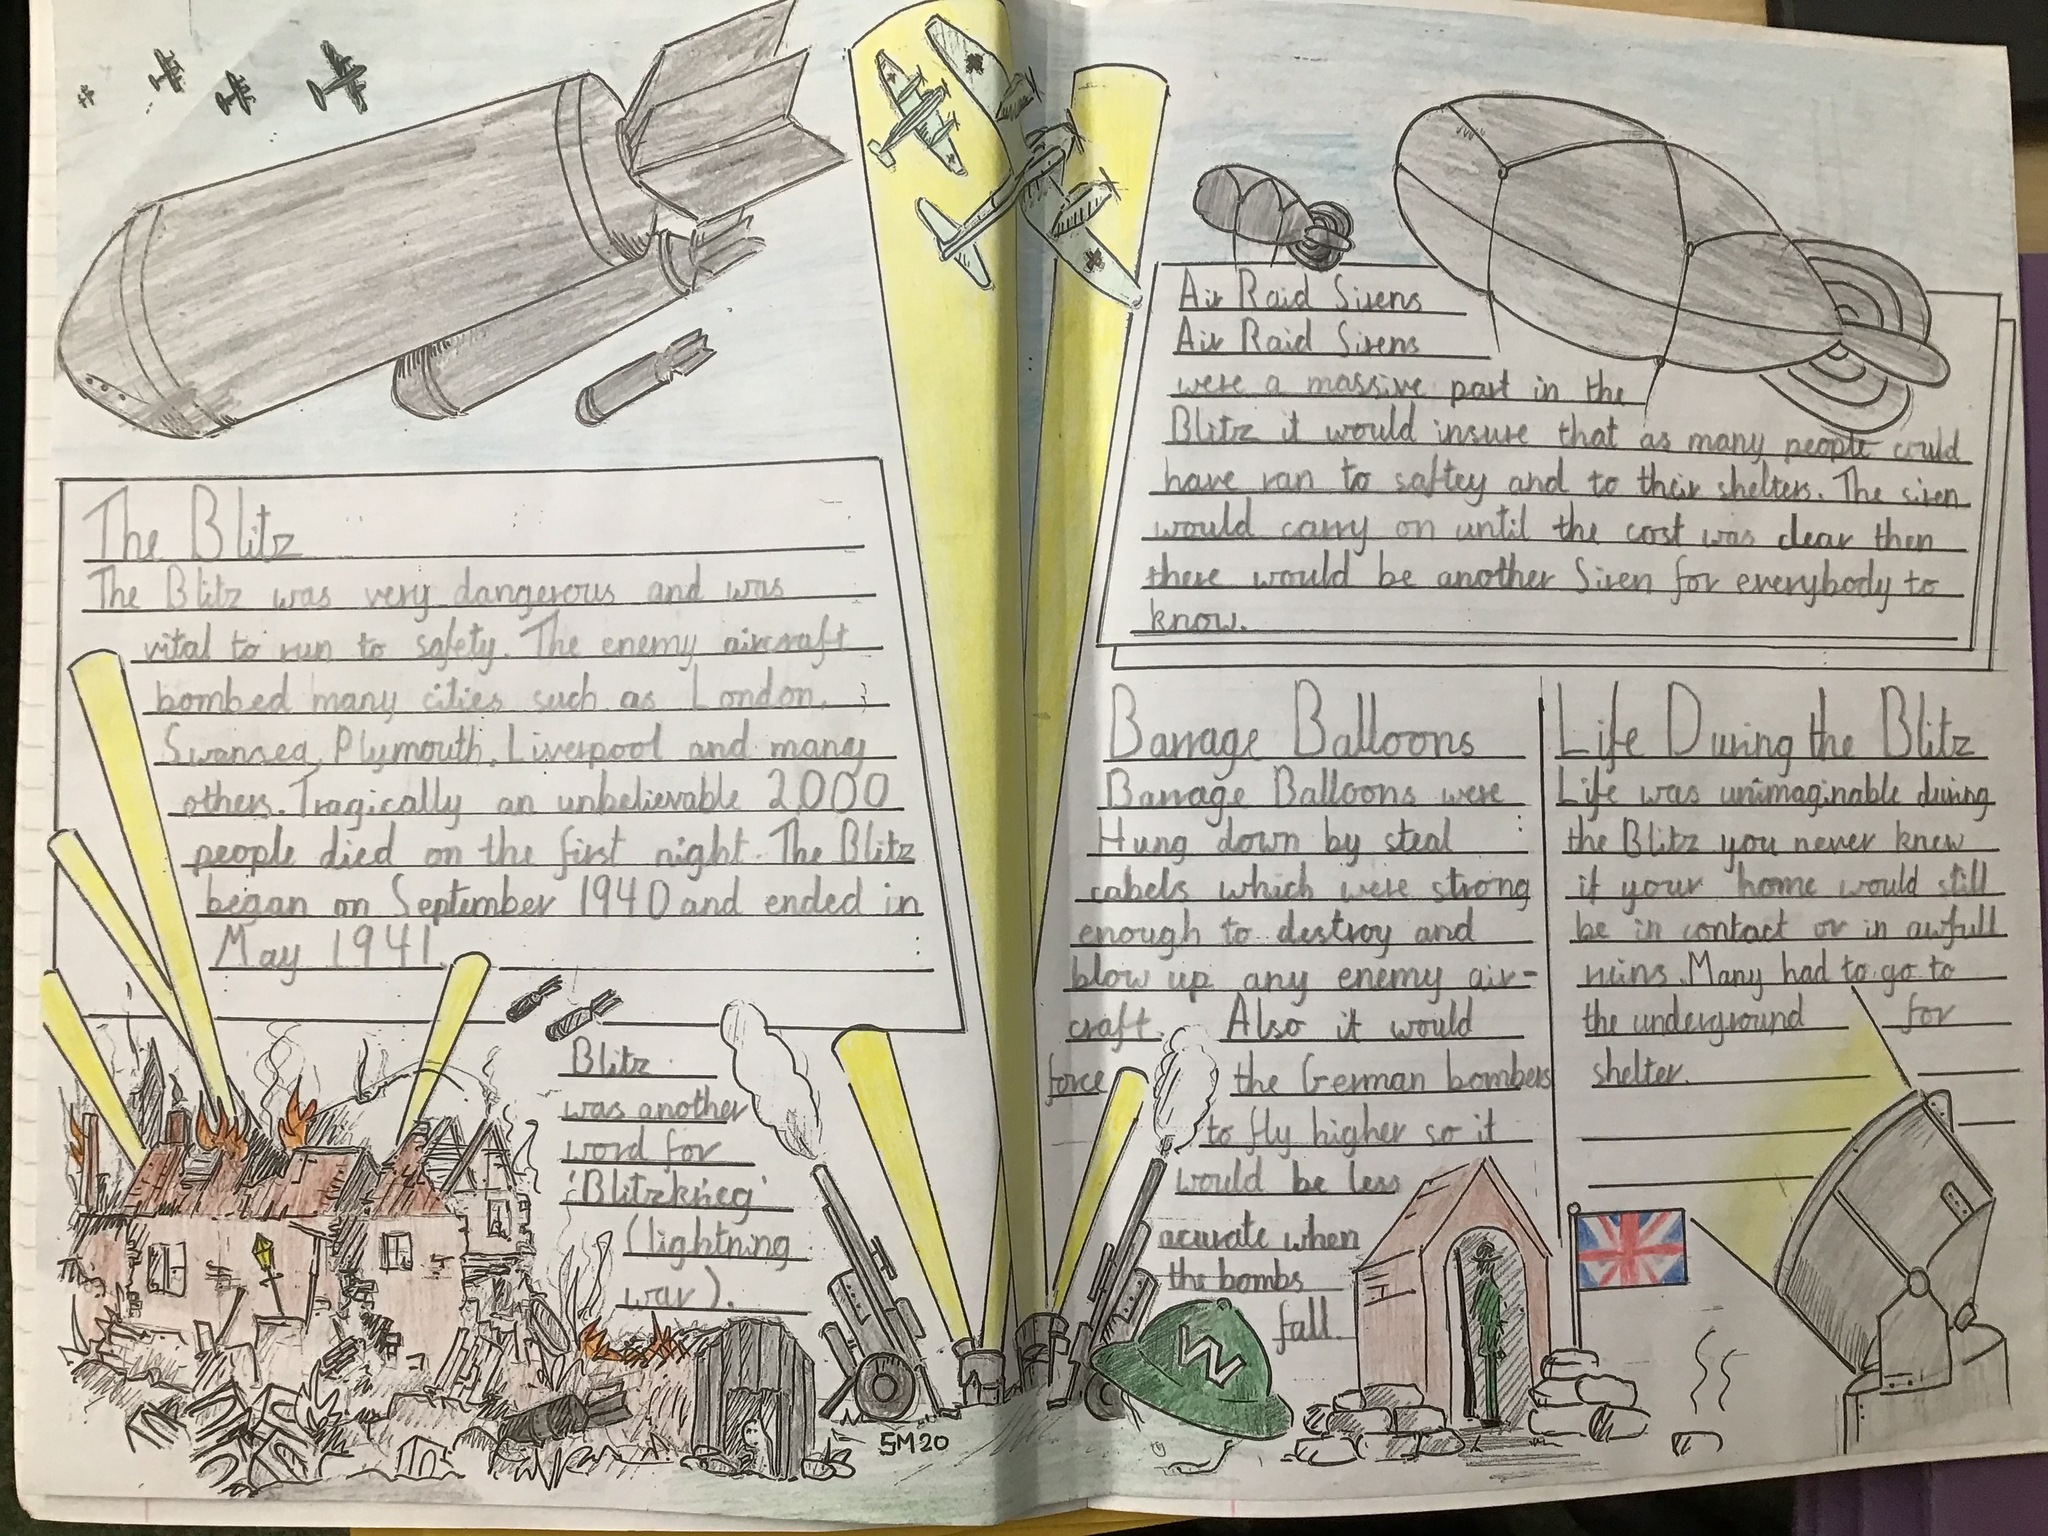 The Blitz
The Blitz was very dangerous and was
vital to run to safety. The enemy aircraft
bombed many cities such as London,
Swansea, Plymouth, Liverpool and many
others. Tragically an unbelievable 2,000
people died on the first night. The Blitz
began on September 1940 and ended in
May 1941.
Blitz
was another
word for
'Blitzkrieg'
(lightning
war).
SM20
Air Raid Sirens
Air Raid Sirens
were a massive part in the
Blitz it would insure that as many people could
have ran to saftey and to their shelters. The siren
would carry on until the cost was clear then
there would be another Siren for everybody to
know.
Barrage Balloons
Barrage Balloons were
Hung down by steal
cabels which were strong
enough to destroy and
blow up any enemy air-
craft. Also it would
force the German bombers
to fly higher so it
would be less
acurate when
the bombs
fall.
W
Life During the Blitz
Life was unimaginable during
the Blitz you never knew
if your home would still
be in contact or in awfull
ruins. Many had to go to
the underground for
shelter.